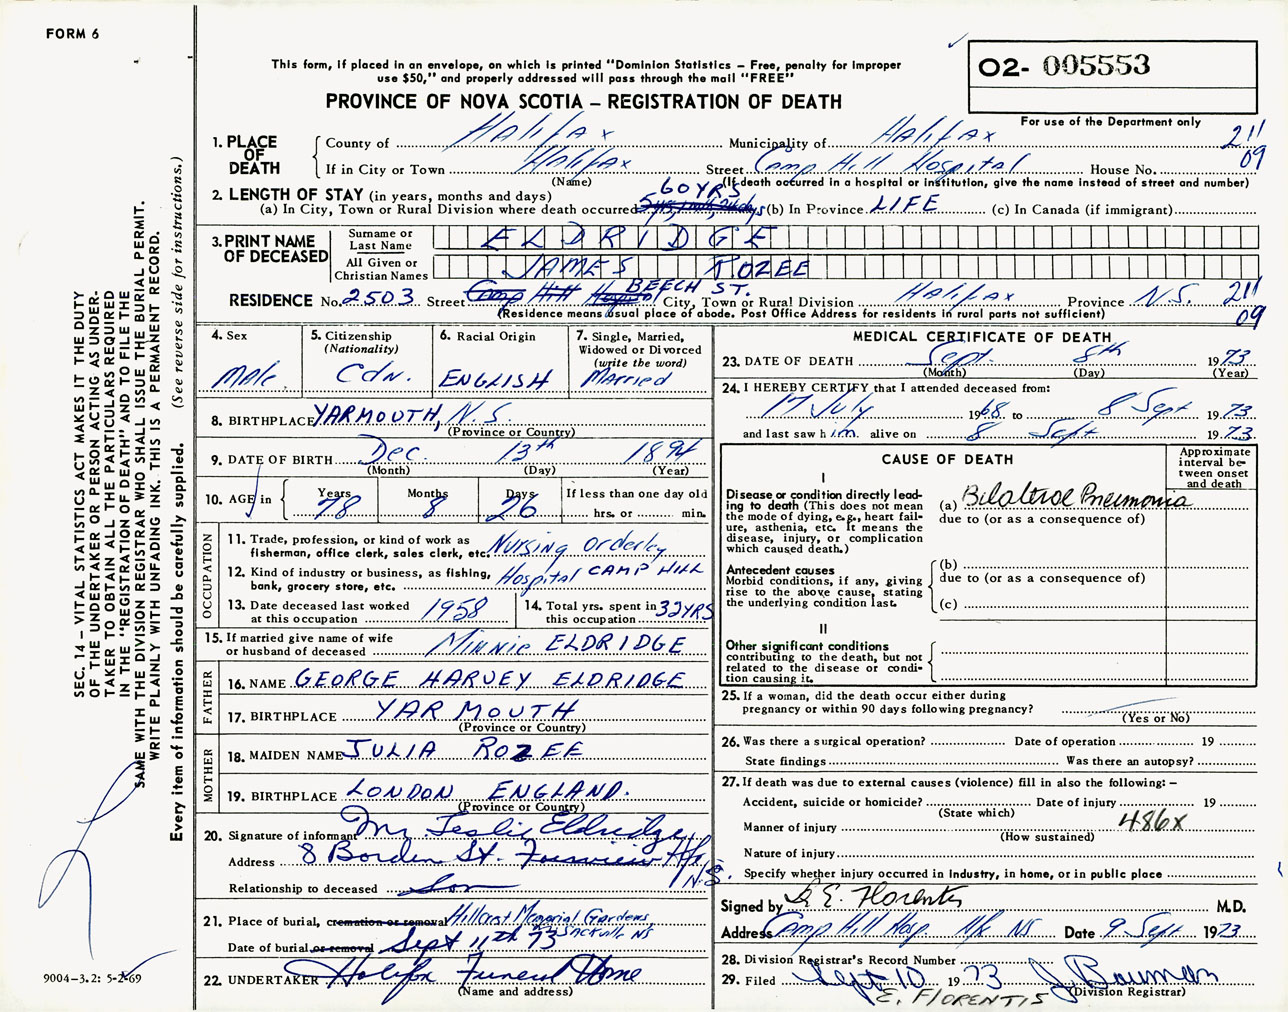 FORM 6
This form, if placed in an envelope, on which is printed "Dominion Statistics – Free, penalty for improper
use $50," and properly addressed will pass through the mail "FREE"
O2- 005553
PROVINCE OF NOVA SCOTIA – REGISTRATION OF DEATH
For use of the Department only
1. PLACE OF DEATH
County of Halifax Municipality of Halifax 211
If in City or Town Halifax Street Camp Hill Hospital House No. 09
(Name) (If death occurred in a hospital or institution, give the name instead of street and number)
2. LENGTH OF STAY (in years, months and days) 60 YRS
(a) In City, Town or Rural Division where death occurred (b) In Province LIFE (c) In Canada (if immigrant)
3. PRINT NAME OF DECEASED
Surname or Last Name ELDRIDGE
All Given or Christian Names JAMES ROZEE
RESIDENCE No. 2503 Street Camp Hill Hospital BEECH ST. City, Town or Rural Division Halifax Province N.S. 211
(Residence means usual place of abode. Post Office Address for residents in rural parts not sufficient) 09
4. Sex
Male
5. Citizenship
(Nationality)
Cdn.
6. Racial Origin
ENGLISH
7. Single, Married,
Widowed or Divorced
(write the word)
Married
8. BIRTHPLACE YARMOUTH, N.S.
(Province or Country)
9. DATE OF BIRTH Dec. 13th 1894
(Month) (Day) (Year)
10. AGE in
Years 78
Months 8
Days 26
If less than one day old
hrs. or min.
OCCUPATION
11. Trade, profession, or kind of work as
fisherman, office clerk, sales clerk, etc. Nursing Orderley
12. Kind of industry or business, as fishing,
bank, grocery store, etc. Hospital CAMP HILL
13. Date deceased last worked
at this occupation 1958
14. Total yrs. spent in
this occupation 32YRS
15. If married give name of wife
or husband of deceased Minnie ELDRIDGE
FATHER
16. NAME GEORGE HARVEY ELDRIDGE
17. BIRTHPLACE YARMOUTH
(Province or Country)
MOTHER
18. MAIDEN NAME JULIA ROZEE
19. BIRTHPLACE LONDON ENGLAND.
(Province or Country)
20. Signature of informant Mr Leslie Eldridge
Address 8 Borden St. Fairview Hfx
N.S.
Relationship to deceased Son
21. Place of burial, cremation or removal Hillcrest Memorial Gardens
Sackville NS
Date of burial or removal Sept 11th 73
22. UNDERTAKER Halifax Funeral Home
(Name and address)
MEDICAL CERTIFICATE OF DEATH
23. DATE OF DEATH Sept 8th 1973
(Month) (Day) (Year)
24. I HEREBY CERTIFY that I attended deceased from:
17 July 1968 to 8 Sept 1973
and last saw him alive on 8 Sept 1973
CAUSE OF DEATH
Approximate
interval be-
tween onset
and death
I
Disease or condition directly lead-
ing to death (This does not mean
the mode of dying, e.g., heart fail-
ure, asthenia, etc. It means the
disease, injury, or complication
which caused death.)
(a) Bilaltrae Pneumonia
due to (or as a consequence of)
Antecedent causes
Morbid conditions, if any, giving
rise to the above cause, stating
the underlying condition last.
(b)
due to (or as a consequence of)
(c)
II
Other significant conditions
contributing to the death, but not
related to the disease or condi-
tion causing it.
25. If a woman, did the death occur either during
pregnancy or within 90 days following pregnancy?
(Yes or No)
26. Was there a surgical operation? Date of operation 19
State findings Was there an autopsy?
27. If death was due to external causes (violence) fill in also the following: –
Accident, suicide or homicide? Date of injury 19
(State which)
Manner of injury 486x
(How sustained)
Nature of injury
Specify whether injury occurred in industry, in home, or in public place
Signed by E. Florentis M.D.
Address Camp Hill Hosp. Hfx NS Date 9 Sept 1973
28. Division Registrar's Record Number
29. Filed Sept 10 1973 J Bauman
(Division Registrar)
E. FLORENTIS
SEC. 14 – VITAL STATISTICS ACT MAKES IT THE DUTY
OF THE UNDERTAKER OR PERSON ACTING AS UNDER-
TAKER TO OBTAIN ALL THE PARTICULARS REQUIRED
IN THE "REGISTRATION OF DEATH" AND TO FILE THE
SAME WITH THE DIVISION REGISTRAR WHO SHALL ISSUE THE BURIAL PERMIT.
WRITE PLAINLY WITH UNFADING INK. THIS IS A PERMANENT RECORD.
Every item of information should be carefully supplied. (See reverse side for instructions.)
9004-3.2: 5-2-69